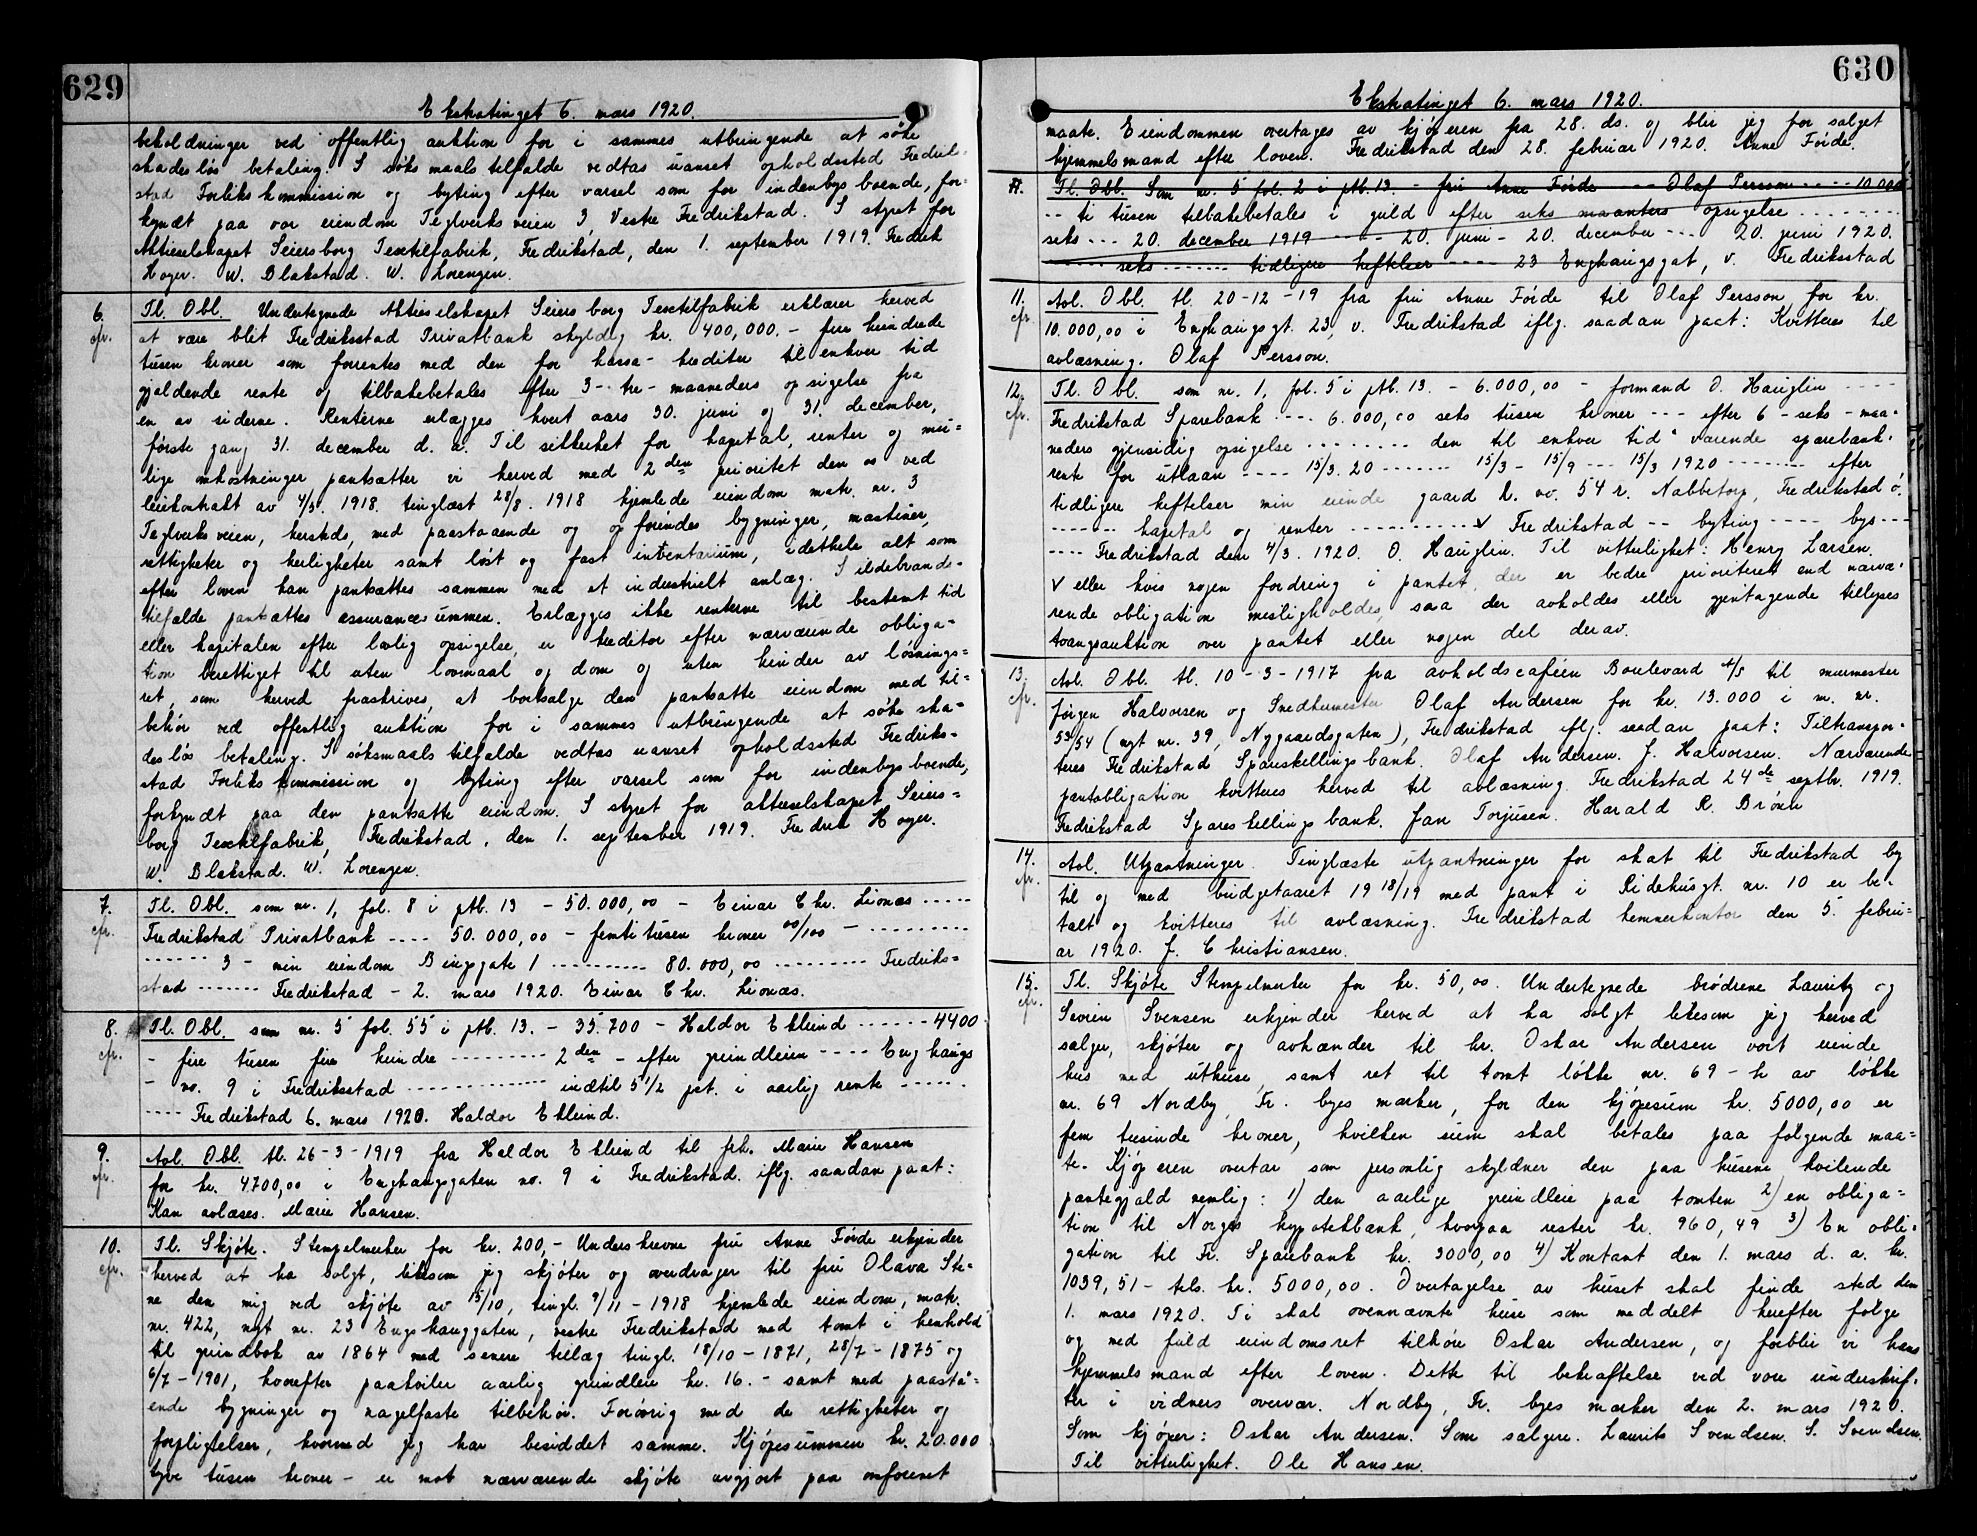 629
Ekstratinget 6. mars 1920.
beholdninger ved offentlig auktion for i sammes utbringende at söke
skadeslös betaling. I söksmaalstilfælde vedtas uanset opholdssted Fredrik-
stad Forlikskommission og byting efter varsel som for indenbys boende, for-
kyndt paa vor eiendom Teglverksveien 3, Vestre Fredrikstad. I styret for
Aktieselskapet Seiersborg Textilfabrik, Fredrikstad, den 1. september 1919. Fredrik
Hoyer. W. Blakstad. W. Lorenzen.
6. Tl. Obl. Undertegnede Aktieselskapet Seiersborg Textilfabrik erklærer herved
cfr. at være blit Fredriksstad Privatbank skyldig kr. 400,000.- fire hundrede
tusen kroner som forrentes med den for kassa-krediter til enhver tid
gjældende rente og tilbakebetales efter 3- tre - maaneders opsigelse fra
en av siderne. Renterne erlægges hvert aars 30. juni og 31. december,
første gang 31. december d. a. Til sikkerhet for kapital, renter og mu-
lige omkostninger pantsætter vi herved med 2den prioritet den os ved
leiekontrakt av 4/5. 1918. tinglæst 28/8. 1918 hjemlede eiendom matr. nr. 3
Teglverksveien, hersteds, med paastaaende og opførendes bygninger, maskiner,
rettigheter og herligheter samt løst og fast inventarium, idethele alt som
efter loven kan pantsættes sammen med et industrielt anlæg. I ildebrands-
tilfælde pantsættes assurancesummen. Erlægges ikke renterne til bestemt tid
eller kapitalen efter lovlig opsigelse, er kreditor efter nærværende obliga-
tion berettiget til uten lovmaal og dom og uten hinder av løsnings-
ret, som herved fraskrives, at bortsælge den pantsatte eiendom med til-
behør ved offentlig auktion for i sammes utbringende at søke ska-
desløs betaling. I søksmaalstilfælde vedtas uanset opholdssted Fredriks-
stad Forlikskommission og byting efter varsel som for indenbysboende,
forkyndt paa den pantsatte eiendom. I styret for aktieselskapet Seiers-
borg Textilfabrik, Fredrikstad, den 1. september 1919. Fredrik Hoyer.
W. Blakstad. W. Lorenzen.
7. Tl. Obl. som nr. 1, fol. 8 i ptb. 13 - 50.000,00 - Einar Chr. Lionæs -----
cfr. Fredrikstad Privatbank ---- 50.000,00 - femti tusen kroner 00/100 - ----------
------ 3 - min eiendom Bingsgate 1 ---------- 80.000,00 --------- Fredriks-
stad ------- Fredrikstad - 2. mars 1920. Einar Chr. Lionæs.
8. Tl. Obl. som nr. 5 fol. 55 i ptb. 13. - 35.700 - Haldor Eklund ------ 4400
cfr. - fire tusen fire hundre --------- 2den - efter grundleien ---- Enghaugs
- no. 9 i Fredriksstad -------------- indtil 5 1/2 pct. i aarlig rente ------
---- Fredrikstad 6. mars 1920. Haldor Eklund.
9. Avl. Obl. tl. 26-3-1919 fra Haldor Eklund til frk. Marie Hansen
cfr. for kr. 4700,00 i Enghaugsgaten no. 9 i Fredrikstad. iflg. saadan paat:
Kan avlæses. Marie Hansen.
10. Tl. Skjöte. Stempelmerker for kr. 200,- Underskrevne fru Anne Förde erkjender
cfr. herved at ha solgt, likesom jeg skjöter og overdrager til fru Olava Ste-
ne den mig ved skjöte av 15/10, tingl. 9/11 - 1918 hjemlede eiendom, matr.
nr. 422, nyt nr. 23 Engshauggaten, vestre Fredrikstad med tomt i henhold
til grundbok av 1864 med senere tillæg tingl. 18/10 - 1871, 28/7 - 1875 og
6/7 - 1901, hvorefter paahviler aarlig grundleie kr. 16. - samt med paastå-
ende bygninger og nagelfaste tilbehör. Forövrig med de rettigheter og
forpligtelser, hvormed jeg har besiddet samme. Kjöpesummen kr. 20.000
tyve tusen kroner - er mot nærværende skjöte avgjort paa omforenet
630
Ekstratinget 6. mars 1920.
maate. Eiendommen overtages av kjöperen fra 28. ds. og blir jeg for salget
hjemmelsmand efter loven. Fredrikstad den 28. februar 1920. Anne Förde.
Tl. Obl. Som nr. 5 fol. 2 i ptb. 13. - fru Anne Förde -- Olaf Persson ---- 10.000
-- ti tusen tilbakebetales i guld efter seks maaneters opsigelse --------
seks --- 20. december 1919 ----- 20. juni - 20. december --- 20. juni 1920.
----- seks ------- tidligere heftelser ---- 23 Enghaugsgat, v. Fredriksstad
11. Avl. Obl. tl. 20-12-19 fra fru Anne Förde til Olaf Persson for kr.
cfr. 10.000,00 i Enghaugsgt. 23, v. Fredrikstad iflg. saadan paat: Kvitteres til
avlæsning. Olaf Persson.
12. Tl. Obl. som nr. 1, fol. 5 i ptb. 13. - 6.000,00 - formand O. Hauglin ----
cfr. Fredrikstad Sparebank --- 6.000,00 seks tusen kroner --- efter 6 - seks - maa-
neders gjensidig opsigelse --------- den til enhver tid værende sparebank-
rente for utlaan ---- 15/3. 20 ------- 15/3 - 15/9 --- 15/3 1920 -------- efter
tidligere heftelser min eiende gaard L. no. 54 r. Nabbetorp, Fredrikstad ö.
------- kapital og renter ----------- v Fredrikstad -- byting ---- bys---
---- Fredrikstad den 4/3. 1920. O. Hauglin. Til vitterlighet: Henry Larsen.
v eller hvis nogen fordring i pantet, der er bedre prioriteret end nærvæ-
rende obligation misligholdes, saa der avholdes eller gjentagende tillyses
tvangsauktion over pantet eller nogen del derav.
13. Avl. Obl. tl. 10-3-1917 fra avholdscafeen Boulevard A/S til murmester
cfr. Jørgen Halvorsen og Snedkermester Olaf Andersen for kr. 13.000 i m. nr.
53/54 (nyt nr. 39, Nygaardsgaten), Fredrikstad iflg. saadan paat: Tiltranspor-
teres Fredrikstad Spareskillingsbank. Olaf Andersen. J. Halvorsen. Nærværende
pantobligation kvitteres herved til avlæsning. Fredrikstad 24de septbr. 1919.
Fredrikstad Spareskillingsbank. Jan Torjusen. Harald R. Brönn
14. Avl. Utpantninger. Tinglæste utpantninger for skat til Fredrikstad by
cfr. til og med budgetaaret 1918/19 med pant i Ridehusgt. nr. 10 er be-
talt og kvitteres til avlæsning. Fredrikstad kemnerkontor den 5. febru-
ar 1920. J. Christiansen.
15. Tl. Skjöte Stempelmerker for kr. 50,00. Undertegnede brödrene Lauritz og
cfr. Sevrin Svensen erkjender herved at ha solgt likesom jeg herved
sælger, skjöter og avhænder til hr. Oskar Andersen vort eiende
hus med uthuse, samt ret til tomt lökke nr. 69-h av lökke
nr. 69 Nordby, Fr. byes marker, for den kjöpesum kr. 5000,00 er
fem tusinde kroner, hvilken sum skal betales paa følgende maa-
te. Kjöperen overtar som personlig skyldner den paa husene hvilende
pantegjæld nemlig: 1) den aarlige grundleie paa tomten 2) en obliga-
tion til Norges hypotekbank, hvorpaa rester kr. 960,49 3) En obli-
gation til Fr. Sparebank kr. 3000,00 4) Kontant den 1. mars d. a. kr.
1039,51 - tils. kr. 5000,00. Overtagelse av huset skal finde sted den
1. mars 1920. Ti skal ovennævnte huse som meddelt herefter følge
og med fuld eiendomsret tilhöre Oskar Andersen, og forblir vi hans
hjemmelsmand efter loven. Dette til bekræftelse ved vore underskrif-
ter i vidners overvær. Nordby, Fr. byes marker den 2. mars 1920.
Som kjöper: Oskar Andersen. Som sælgere. Laurits Svendsen. S. Svendsen.
Til vitterlighet. Ole Hansen.